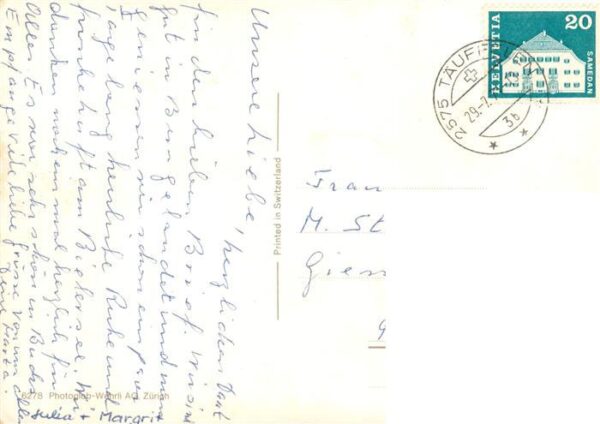 Unsere Liebe, herzlichen Dank
für den lieben Brief. Wir sind
gut in Bungeländet und nun
geniessen wir schon ein paar
Tage lang herrliche Ruhe und
am Bielersee. Wir
danken nochmal herzlich für
Alles. Es war sehr schön in
Empfange viel liebe Grüsse von uns allen
Deine Marta.
Julia + Margrit
6278 Photoglob-Wehrli AG, Zürich
Printed in Switzerland
HELVETIA
20
SAMEDAN
2575 TÄUFF
29.-7.
3b
Frau
M. St
Gies